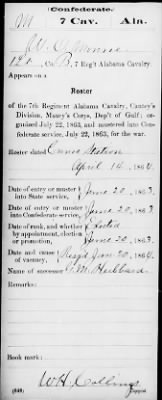 Confederate.
M 7 Cav. Ala.
W. O. Monroe
, Co. B, 7 Reg't Alabama Cavalry.
Appears on a
Roster
of the 7th Regiment Alabama Cavalry, Cantey's
Division, Maury's Corps, Dep't of Gulf; or-
ganized July 22, 1863, and mustered into Con-
federate service, July 22, 1863, for the war.
Roster dated
Station
April 14, 1864.
Date of entry or muster
into State service, June 20, 1863.
Date of entry or muster
into Confederate service, June 20, 1863
Date of rank, and whether
by appointment, election
or promotion, Elected
June 20, 1863.
Date and cause
of vacancy, Resg'd Jan 20, 1864.
Name of successor M. Hubbard
Remarks:
Book mark:
W. H. Collins
(649) Copyist